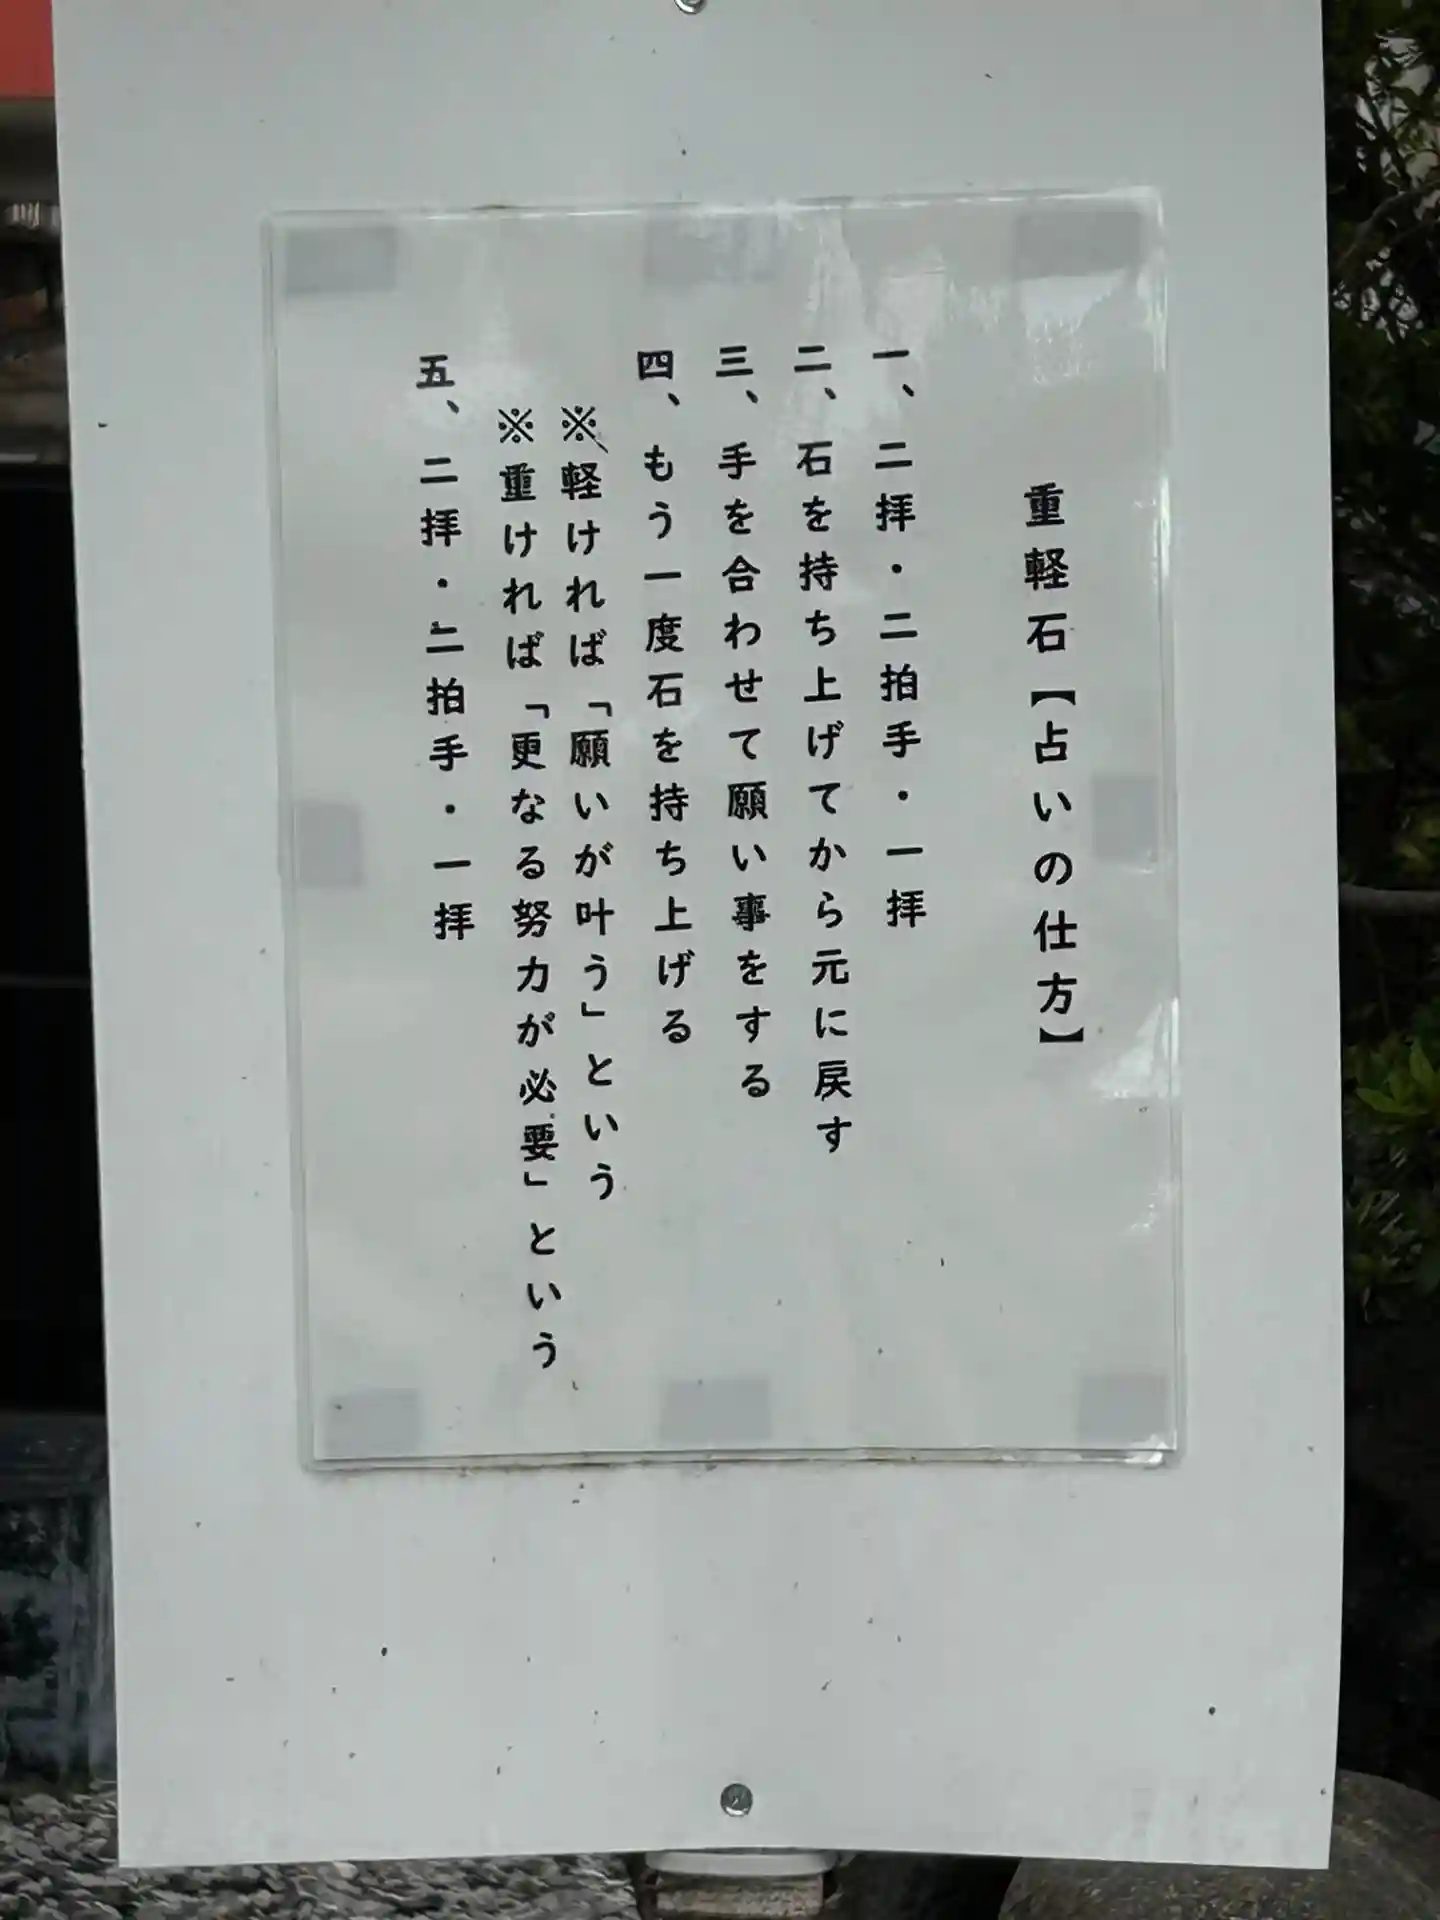 重軽石【占いの仕方】
一、二拝・二拍手・一拝
二、石を持ち上げてから元に戻す
三、手を合わせて願い事をする
四、もう一度石を持ち上げる
※軽ければ「願いが叶う」という
※重ければ「更なる努力が必要」という
五、二拝・二拍手・一拝